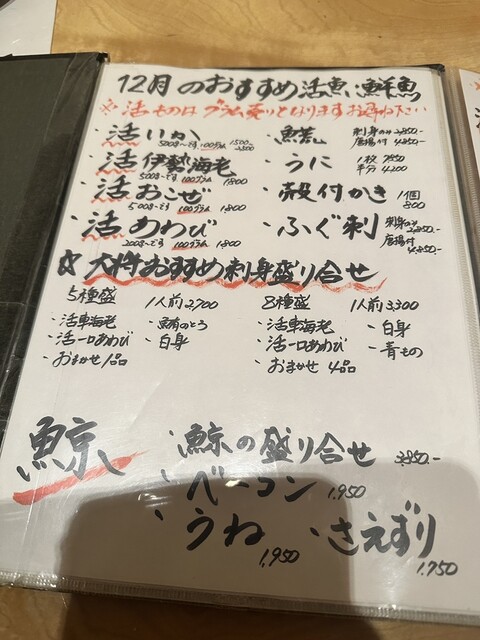 12月のおすすめ活魚、鮮魚
※活ものはグラム売りとなります お尋ね下さい
・活いか 500g〜です 100グラム 1500〜
・活伊勢海老 500g〜です 100グラム 1,800
・活おこぜ 500g〜です 100グラム 1,800
・活あわび 200g〜です 100グラム 1,800
刺身のみ 3,850.-
唐揚付 4,800.-
・うに 1枚 7,850 半分 4,200
・殻付かき 1個 800
・ふぐ刺 刺身のみ 2,850.-
唐揚付 4,350.-
☆大将おすすめ刺身盛り合せ
5種盛 1人前 2,700
・活車海老 ・鮪のとろ
・活一口あわび ・白身
・おまかせ1品
8種盛 1人前 3,300
・活車海老 ・白身
・活一口あわび ・青もの
・おまかせ4品
鯨
・鯨の盛り合せ 3,850.-
・ベーコン 1,950
・うね 1,950
・さえずり 1,750